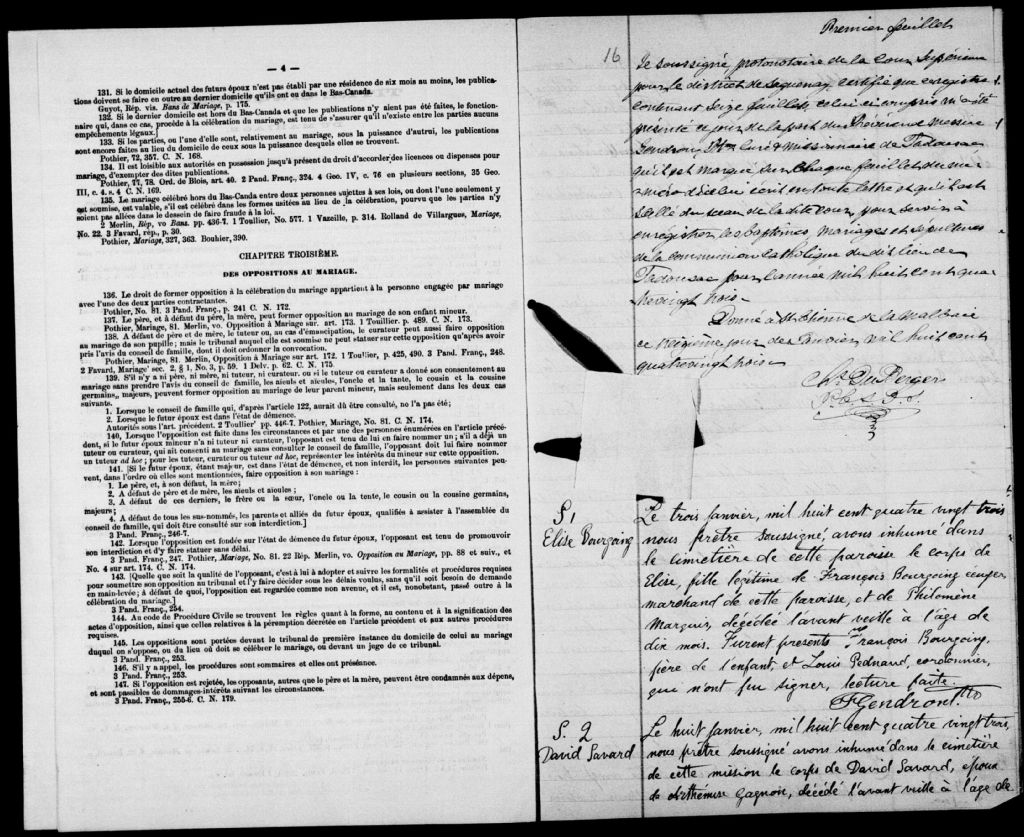 — 4 —
131. Si le domicile actuel des futurs époux n'est pas établi par une résidence de six mois au moins, les publica-
tions doivent se faire en outre au dernier domicile qu'ils ont eu dans le Bas-Canada.
Guyot, Rép. vis. Bans de Mariage, p. 175.
132. Si le dernier domicile est hors du Bas-Canada et que les publications n'y aient pas été faites, le fonction-
naire qui, dans ce cas, procède à la célébration du mariage, est tenu de s'assurer qu'il n'existe entre les parties aucuns
empêchements légaux.]
133. Si les parties, ou l'une d'elle sont, relativement au mariage, sous la puissance d'autrui, les publications
sont encore faites au lieu du domicile de ceux sous la puissance desquels elles se trouvent.
Pothier, 72, 357. C. N. 168.
134. Il est loisible aux autorités en possession jusqu'à présent du droit d'accorder des licences ou dispenses pour
mariage, d'exempter des dites publications.
Pothier, 77, 78. Ord. de Blois, art. 40. 2 Pand. Franç., 324. 4 Geo. IV, c. 76 en plusieurs sections, 35 Geo.
III, c. 4. s. 4 C. N. 169.
135. Le mariage célébré hors du Bas-Canda entre deux personnes sujettes à ses lois, ou dont l'une seulement y
est soumise, est valable, s'il est célébré dans les formes usitées au lieu de la célébration, pourvu que les parties n'y
soient pas allées dans le dessein de faire fraude à la loi.
2 Merlin, Rép, vo Bans. pp. 436-7. 1 Toullier, No. 577. 1 Vazeille, p. 314. Rolland de Villargues, Mariage,
No. 22. 3 Favard, rép., p. 30.
Pothier, Mariage, 327, 363. Bouhier, 390.
CHAPITRE TROISIÈME.
DES OPPOSITIONS AU MARIAGE.
136. Le droit de former opposition à la célébration du mariage appartient à la personne engagée par mariage
avec l'une des deux parties contractantes.
Pothier, No. 81. 3 Pand. Franç., p. 241 C. N. 172.
137. Le père, et à défaut du père, la mère, peut former opposition au mariage de son enfant mineur.
Pothier, Mariage, 81. Merlin, vo. Opposition à Mariage sur. art. 173. 1 Touillier. p. 489. C. N. 173.
138. A défaut de père et de mère, le tuteur ou, au cas d'émancipation, le curateur peut aussi faire opposition
au mariage de son pupille ; mais le tribunal auquel elle est soumise ne peut statuer sur cette opposition qu'après avoir
pris l'avis du conseil de famille, dont il doit ordonner la convocation.
Pothier, Mariage, 81. Merlin, Opposition à Mariage sur art. 172. 1 Toullier, p. 425, 490. 3 Pand. Franç., 248.
2 Favard, Mariage' sec. 2, § 1, No. 3, p. 59. 1 Delv. p. 62. C. N. 175.
139. S'il n'y a ni père, ni mère, ni tuteur, ni curateur. ou si le tuteur ou curateur a donné son consentement au
mariage sans prendre l'avis du conseil de famille, les aïeuls et aïeules, l'oncle et la tante, le cousin et la cousine
germains,, majeurs, peuvent former opposition au mariage de leur parent mineur, mais seulement dans les deux cas
suivants.
1. Lorsque le conseil de famille qui, d'après l'article 122, aurait dû être consulté, ne l'a pas été;
2. Lorsque le futur époux est dans l'état de démence.
Autorités sous l'art. précédent. 2 Toullier' pp. 446-7. Pothier, Mariage, No. 81. C. N. 174.
140, Lorsque l'opposition est faite dans les circonstances et par une des personnes énumérées en l'article précé-
dent, si le futur époux mineur n'a ni tuteur ni curateur, l'opposant est tenu de lui en faire nommer un ; s'il a déjà un
tuteur ou curateur, qui ait consenti au mariage sans consulter le conseil de famille, l'opposant doit lui faire nommer
un tuteur ad hoc ; pour les tuteur, curateur ou tuteur ad hoc, représenter les intérêts du mineur sur cette opposition.
141. [Si le futur époux, étant majeur, est dans l'état de démence, et non interdit, les personnes suivantes peu-
vent, dans l'ordre où elles sont mentionnées, faire opposition à son mariage :
1. Le père, et, à son défaut, la mère;
2. A défaut de père et de mère, les aïeuls et aïeules ;
3, A défaut de ces derniers, le frère ou la sœur, l'oncle ou la tente, le cousin ou la cousine germains,
majeurs ;
4. A défaut de tous les sus-nommés, les parents et alliés du futur époux, qualifiés à assister à l'assemblée du
conseil de famille, qui doit être consulté sur son interdiction.]
3 Pand. Franç., 246-7.
142. Lorsque l'opposition est fondée sur l'état de démence du futur époux, l'opposant est tenu de promouvoir
son interdiction et d'y faire statuer sans délai.
3 Pand. Franç., 247. Pothier, Mariage, No. 81. 22 Rép. Merlin, vo. Opposition au Mariage, pp. 88 et suiv., et
No. 4 sur art. 174. C. N. 174.
143. [Quelle que soit la qualité de l'opposant, c'est à lui à adopter et suivre les formalités et procédures requises
pour soumettre son opposition au tribunal et l'y faire décider sous les délais voulus, sans qu'il soit besoin de demande
en main-levée; à défaut de quoi, l'opposition est regardée comme non avenue, et il est, nonobstant, passé outre à la
célébration du mariage.]
3 Pand. Franç., 254.
144. Au code de Procédure Civile se trouvent les règles quant à la forme, au contenu et à la signification des
actes d'opposition, ainsi que celles relatives à la péremption décrétée en l'article précédent et aux autres procédures
requises.
145. Les oppositions sont portées devant le tribunal de première instance du domicile de celui au mariage
duquel on s'oppose, ou du lieu où doit se célébrer le mariage, ou devant un juge de ce tribunal.
3 Pand. Franç., 253.
146. S'il y a appel, les procédures sont sommaires et elles ont préséance.
3 Pand. Franç., 253.
147. Si l'opposition est rejetée, les opposants, autres que le père et la mère, peuvent être condamnés aux dépens,
et sont passibles de dommages-intérêts suivant les circonstances.
3 Pand. Franç., 255-6. C. N. 179.
Premier feuillet
16
Je soussigné protonotaire de la Cour Supérieure
pour le district de Saguenay certifie que ce registre
contenant Seize feuillets, celui ci compris m'a été
présenté ce jour de la part du Révérend messire
Gendron, Ptre Curé & missionnaire de Tadousac
qu'il est marqué sur chaque feuillet du nu-
méro d'icelui écrit en toute lettre et qu'il est
scellé du sceau de la dite cour, pour servir à
enregistrer les baptêmes mariages et sépultures
de la communion Catholique du dit lieu de
Tadousac pour l'année mil huit cent qua
trevingt trois.
Donné à St Etienne de la Malbaie
ce jour de Janvier mil huit cent
quatrevingt trois.
Chs. DuBerger
P. C. S. D. S.
S. 1
Elise Bourgoing
Le trois Janvier, mil huit cent quatre vingt trois
nous prêtre soussigné, avons inhumé dans
le cimetière de cette paroisse le corps de
Elise, fille légitime de François Bourgoing écuyer,
marchand de cette paroisse, et de Philomène
Marquis, décédée l'avant veille à l'âge de
dix mois. Furent présents François Bourgoing,
père de l'enfant, et Louis Pednaud, cordonnier,
qui n'ont pu signer, lecture faite.
F Gendron Ptre
S. 2
David Savard
Le huit Janvier, mil huit cent quatre vingt trois,
nous prêtre soussigné avons inhumé dans le cimetière
de cette mission le corps de David Savard, époux
de Arthémise Gagnon, décédé l'avant veille à l'âge de